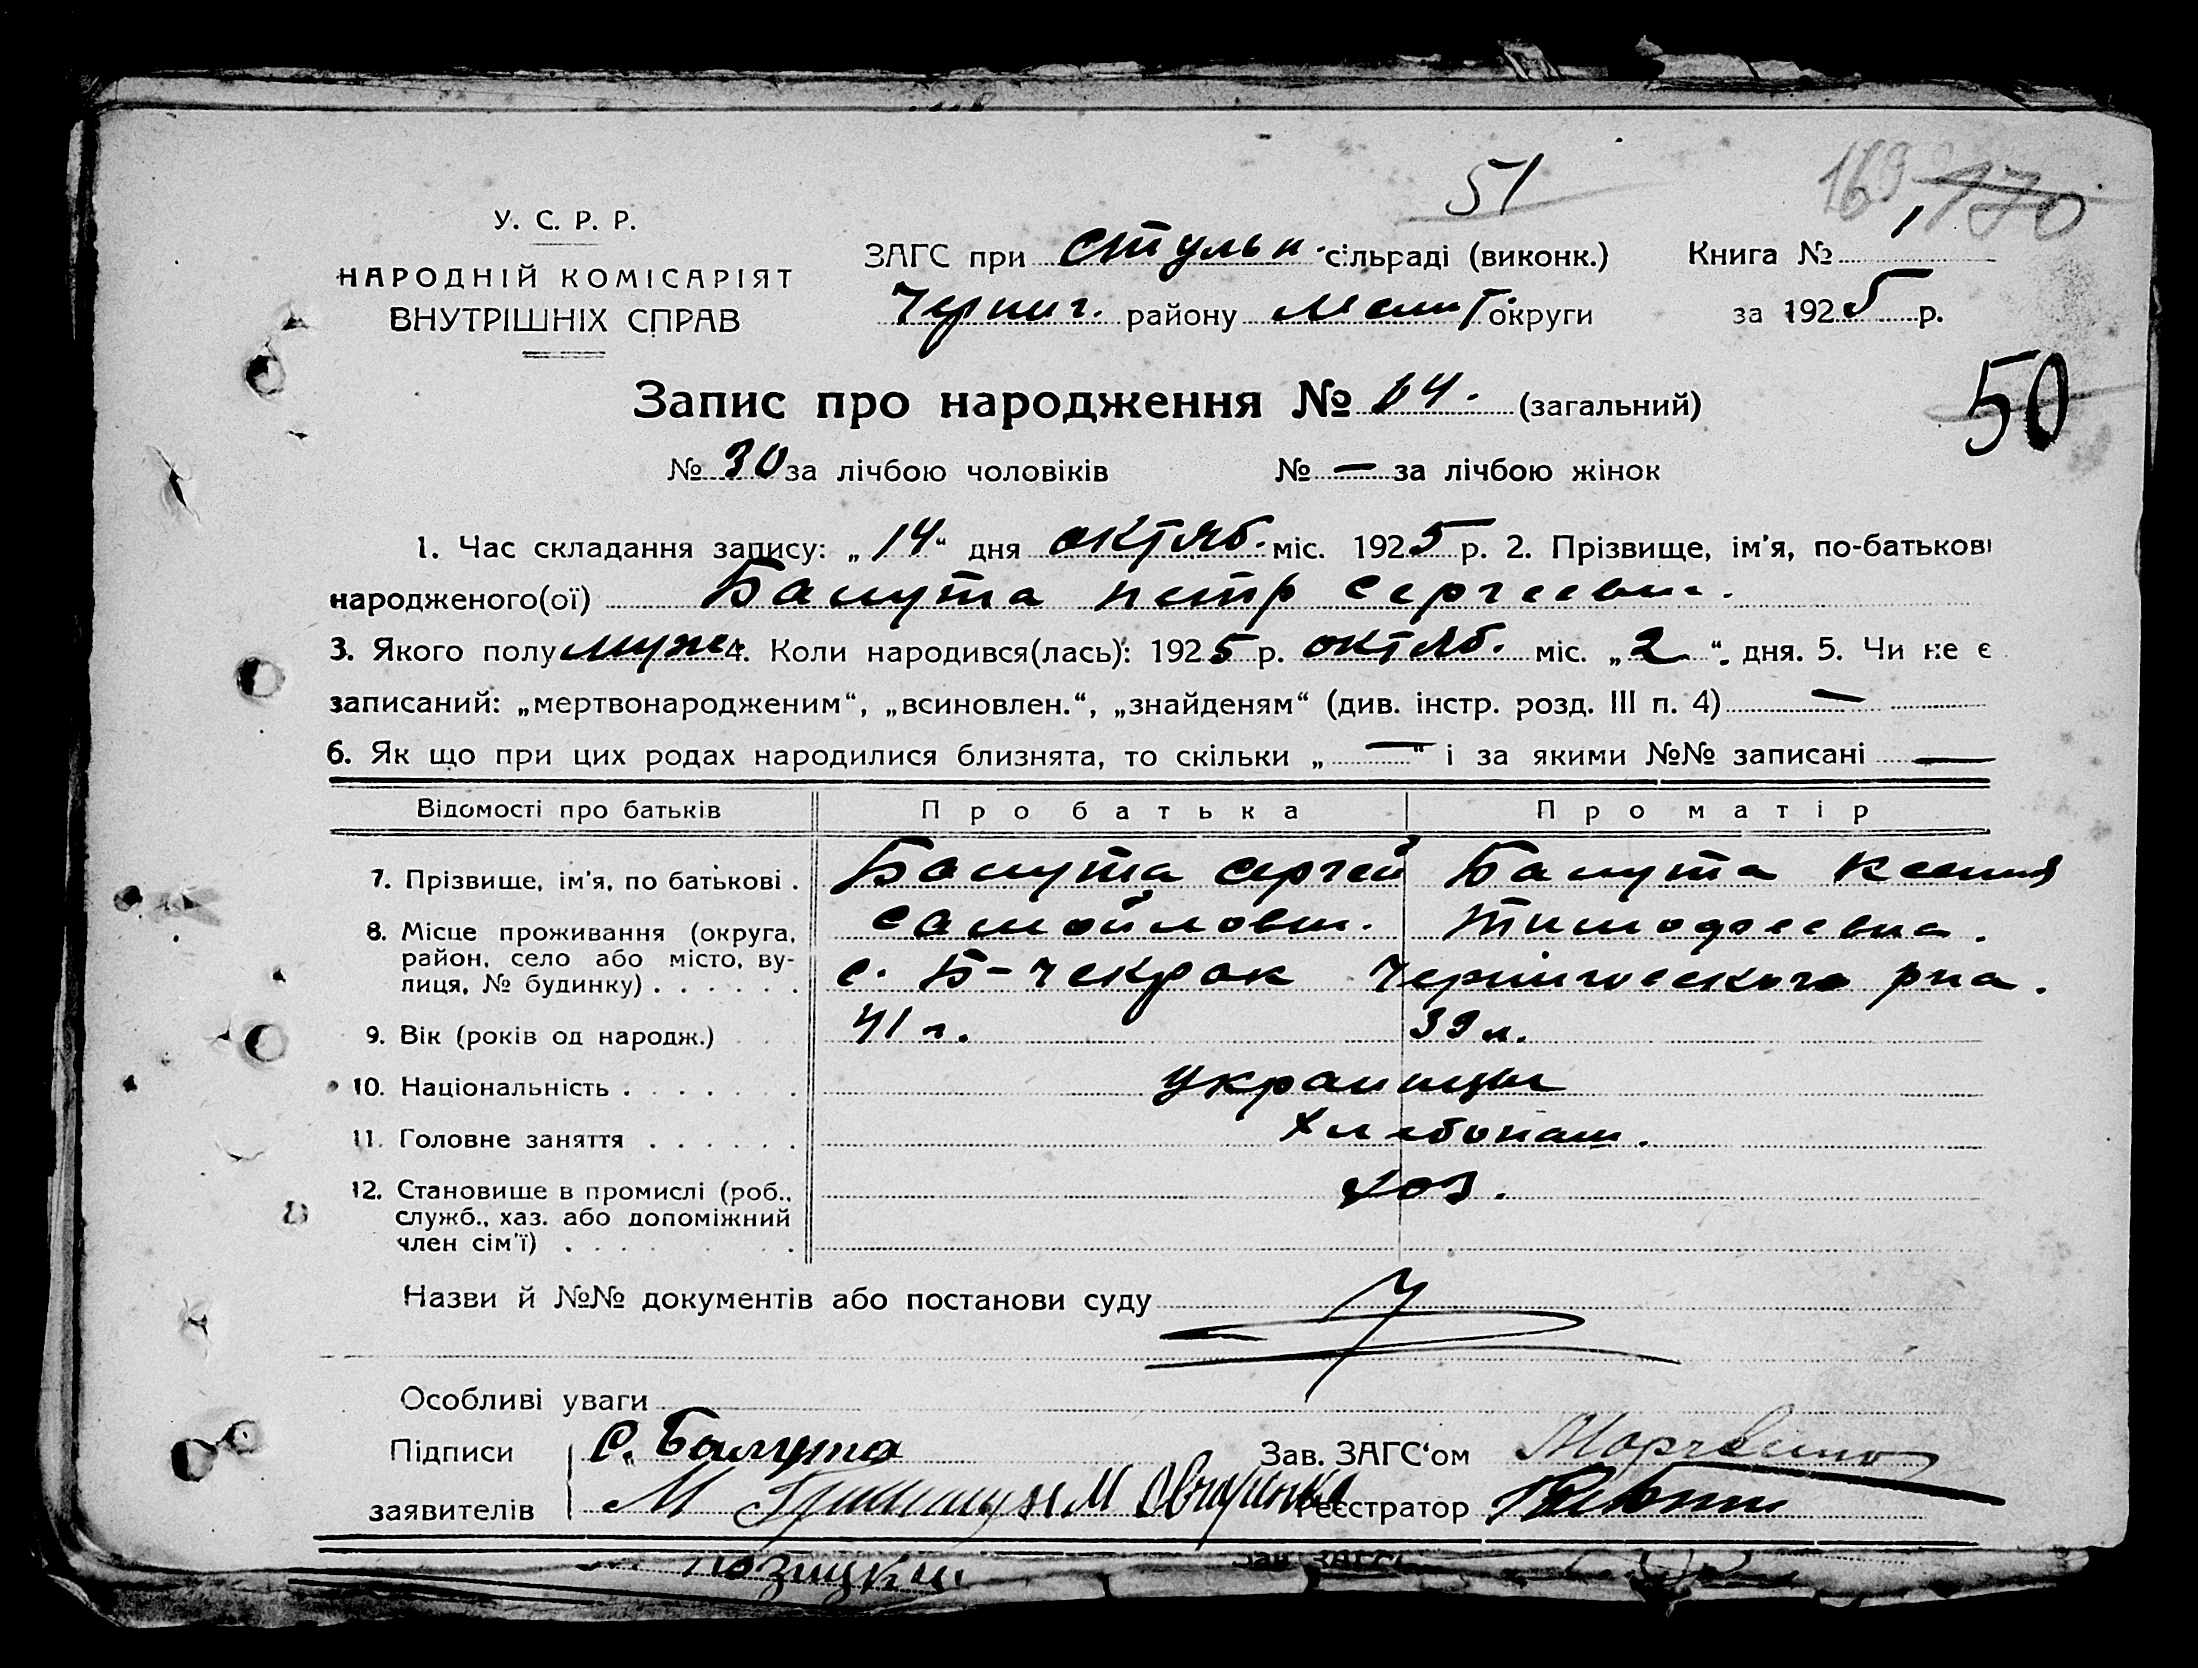 51
169 170
У. С. Р. Р.
НАРОДНІЙ КОМІСАРІЯТ
ВНУТРІШНІХ СПРАВ
ЗАГС при Стульн. сільраді (виконк.) Книга № 1
Черниг. району Мелит округи за 1925 р.
50
Запис про народження № 64. (загальний)
№ 30 за лічбою чоловіків № — за лічбою жінок
1. Час складання запису: „14“ дня октяб. міс. 1925 р. 2. Прізвище, ім'я, по-батькові
народженого(ої) Балута Петр Сергеевич.
3. Якого полу муж 4. Коли народився(лась): 1925 р. октяб. міс. „2“. дня. 5. Чи не є
записаний: „мертвонародженим“, „всиновлен.“, „знайденям“ (див. інстр. розд. III п. 4) —
6. Як що при цих родах народилися близнята, то скільки „—“ і за якими №№ записані —
Відомості про батьків Про батька Про матір
7. Прізвище, ім'я, по батькові . Балута Сергей Балута Ксения
Самойлович. Тимофеевна.
8. Місце проживання (округа,
район, село або місто, вулиця, № будинку) . . . . . . с. Б-Чекрак Черниговского р-на.
9. Вік (років од народж.) 41 г. 39 л.
10. Національність . . . . . . . украинцы
11. Головне заняття . . . . . . Хлебопаш.
12. Становище в промислі (роб., хоз.
служб., хаз. або допоміжний
член сім'ї) . . . . . . . .
Назви й №№ документів або постанови суду
Особливі уваги
Підписи С. Балута Зав. ЗАГС'ом
заявителів М Реєстратор